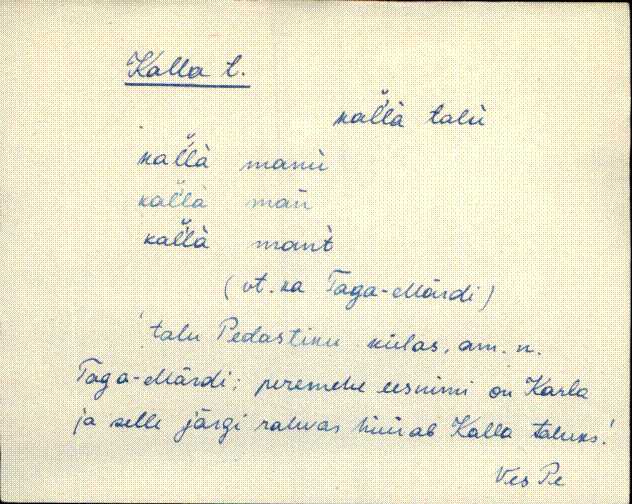 Kalla t.
kal̆l̀à talu
kal̆l̀à manu
kal̆l̀à man
kal̆l̀à mant
(vt. ka Taga-Märdi)
'talu Pedastiku külas, am. n.
Taga-Märdi; peremehe eesnimi on Karla
ja selle järgi rahvas hüüab Kalla taluks.'
Ves Pe